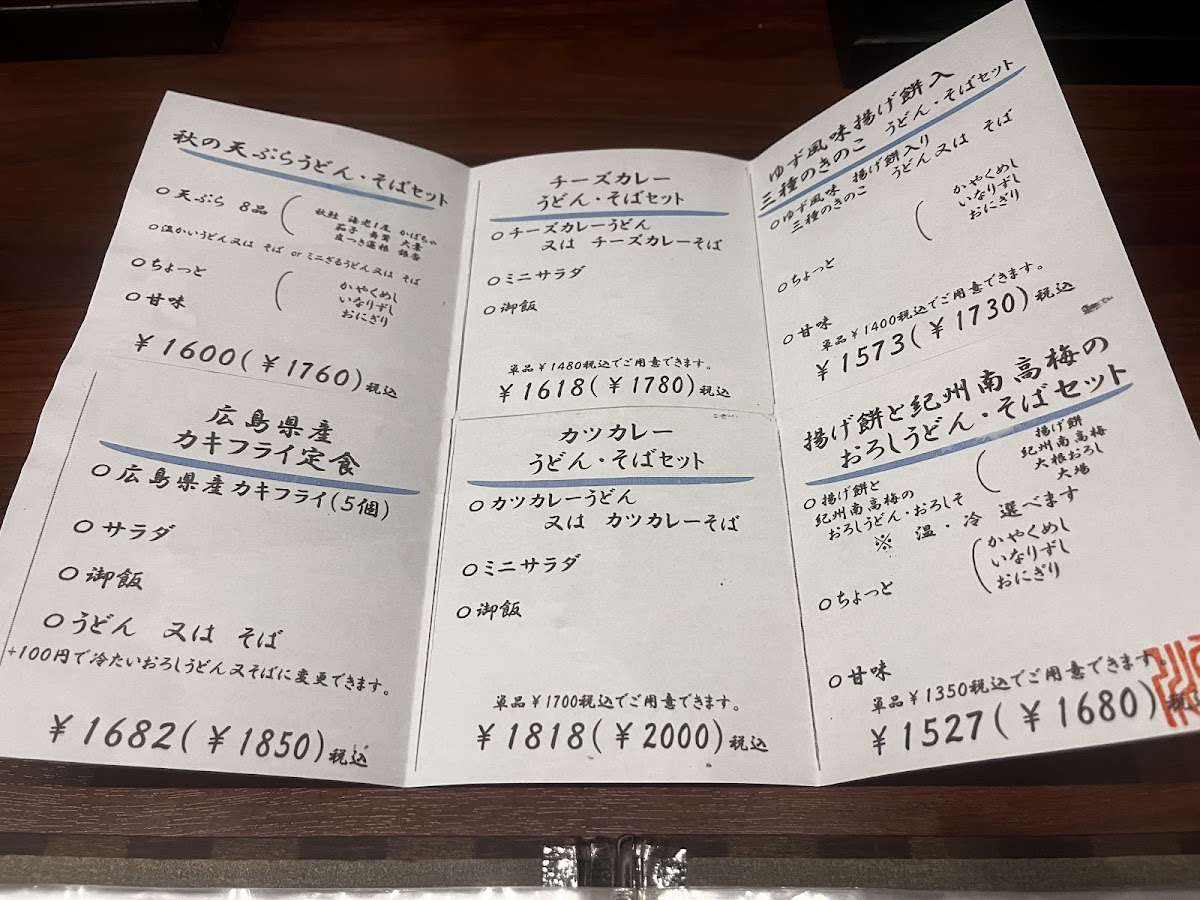 秋の天ぷらうどん・そばセット
○天ぷら 8品
秋鮭 海老1尾 かぼちゃ
茄子 舞茸 大葉
皮つき蓮根 銀杏
○温かいうどん又は そば or ミニざるうどん又は そば
○ちょっと
かやくめし
いなりずし
おにぎり
○甘味
¥1600(¥1760)税込
広島県産
カキフライ定食
○広島県産カキフライ(5個)
○サラダ
○御飯
○うどん 又は そば
+100円で冷たいおろしうどん又そばに変更できます。
¥1682(¥1850)税込
チーズカレー
うどん・そばセット
○チーズカレーうどん
又は チーズカレーそば
○ミニサラダ
○御飯
単品¥1480税込でご用意できます。
¥1618(¥1780)税込
カツカレー
うどん・そばセット
○カツカレーうどん
又は カツカレーそば
○ミニサラダ
○御飯
単品¥1700税込でご用意できます。
¥1818(¥2000)税込
ゆず風味揚げ餅入
三種のきのこ うどん・そばセット
○ゆず風味 揚げ餅入り
三種のきのこ うどん又は そば
○ちょっと
かやくめし
いなりずし
おにぎり
○甘味
単品¥1400税込でご用意できます。
¥1573(¥1730)税込
揚げ餅と紀州南高梅の
おろしうどん・そばセット
○揚げ餅と
紀州南高梅の
おろしうどん・おろしそ
揚げ餅
紀州南高梅
大根おろし
大場
※ 温・冷 選べます
○ちょっと
かやくめし
いなりずし
おにぎり
○甘味
単品¥1350税込でご用意できます。
¥1527(¥1680)税込